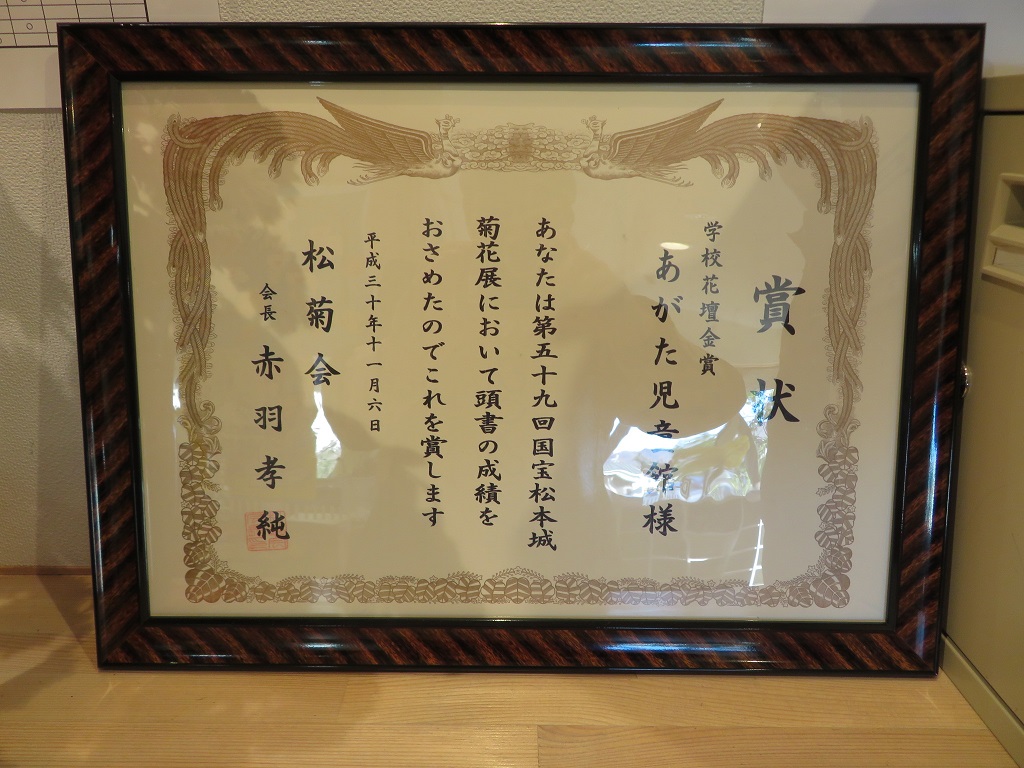 賞状
学校花壇金賞
あがた児童館様
あなたは第五十九回国宝松本城
菊花展において頭書の成績を
おさめたのでこれを賞します
平成三十年十一月六日
松菊会
会長 赤羽孝純